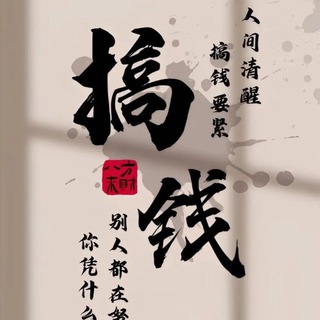 人间清醒
搞钱要紧
搞钱
八方来财
别人都在努
你凭什么